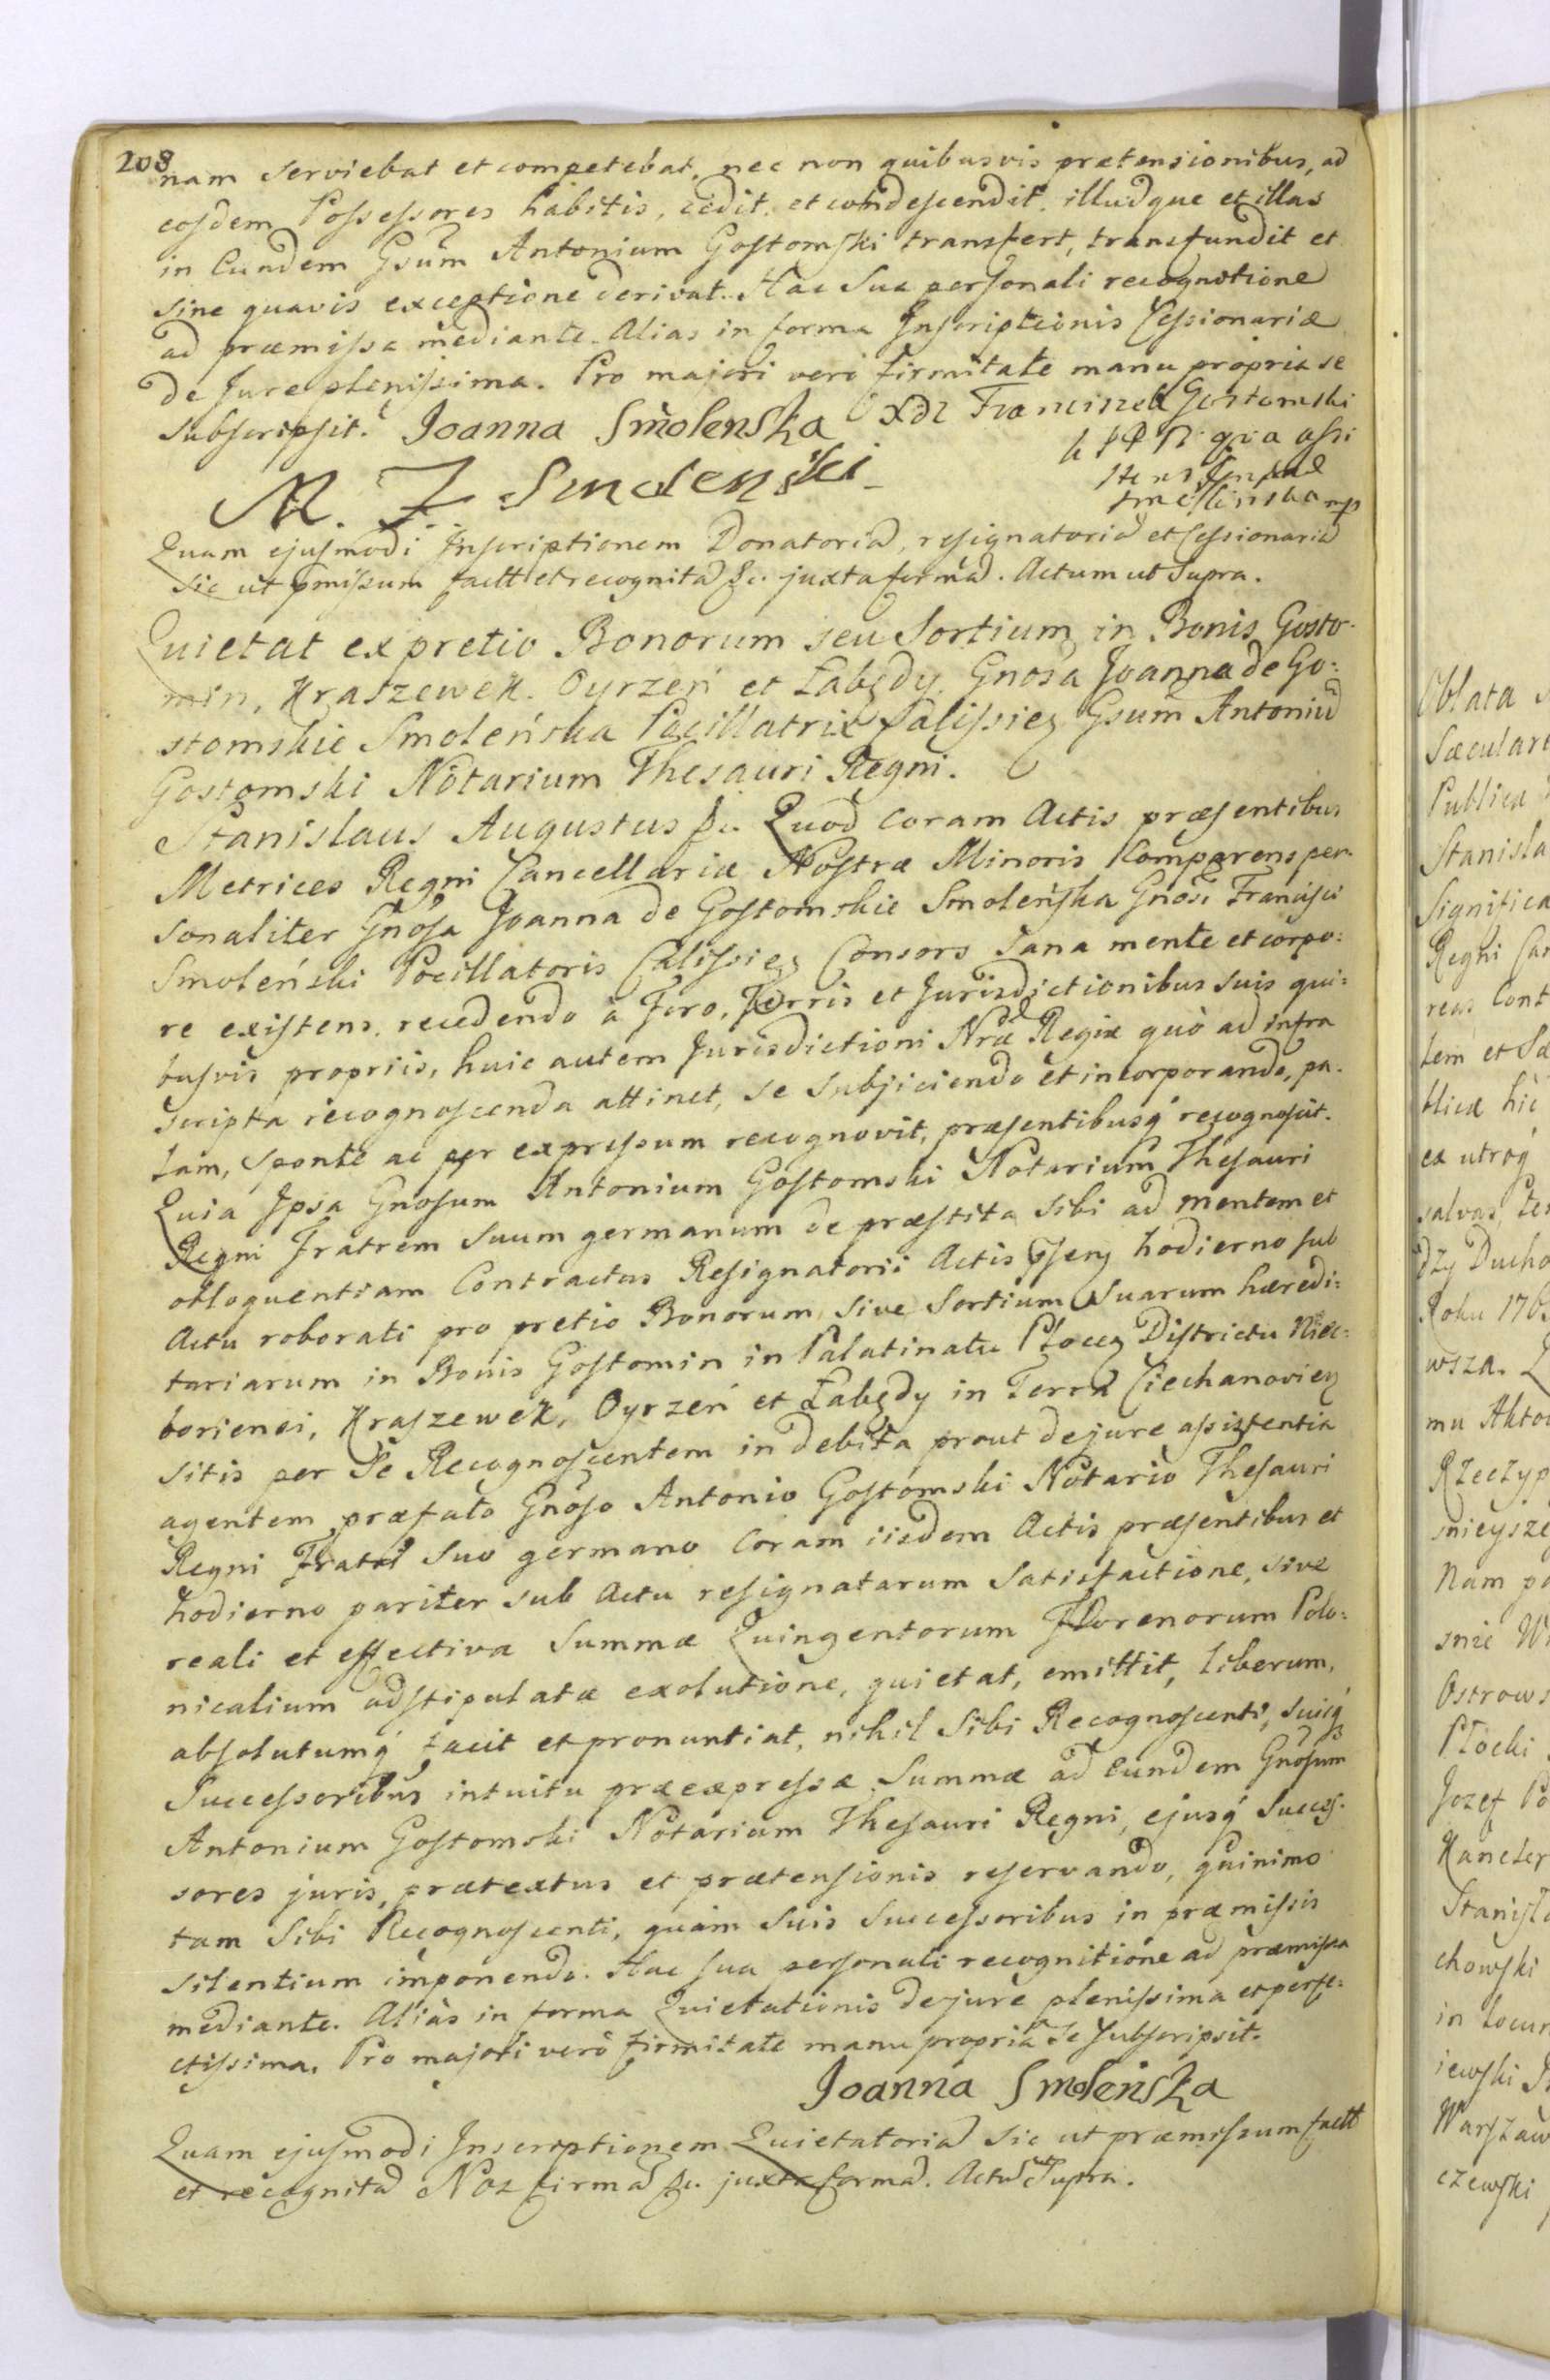 208
nam serviebat et competebat, nec non quibusvis prætensionibus, ad
eosdem Possessores habitis, cedit et condescendit, illudque et illas
in Eundem Gsum Antonium Gostomski transfert, transfundit et
sine quavis exceptione derivat. Hac Sua personali recognitione
ad præmissa mediante. Alias in forma Inscriptionis Cessionariæ
de Jure plenissima. Pro majori vero firmitate manu propria se
subscripsit. Joanna Smolenska XDz Franciszek Gostomski
qua assi
M. F Smolenski
Quam ejusmodi Inscriptionem Donatoriã, resignatoriã et Cessionariã
sic ut pmissum factt et recognitã &c. juxta formã. Actum ut Supra.
Quietat ex pretio Bonorum seu Sortium in Bonis Gosto-
min, Kraszewek. Oyrzeń et Łabędy. Gnosa Joanna de Go:
stomskie Smoleńska Pocillatrix Calissieñ Gsum Antoniũ
Gostomski Notarium Thesauri Regni.
Stanislaus Augustus &c. Quod coram Actis præsentibus
Metrices Regni Cancellariæ Nostræ Minoris Comparens per-
sonaliter Gnosa Joanna de Gostomskie Smoleńska Gnosi Francisci
Smoleński Pocillatoris Calissieñ Consors sana mente et corpo:
re existens, recedendo à Foro, Terris et Jurisdictionibus suis qui:
busvis propriis, huic autem Jurisdictioni Nræ Regiæ quò ad infra
scripta recognoscenda attinet, se subjiciendo et incorporando, pa-
lam, sponte ac per expressum recognovit, præsentibusq́ recognoscit.
Quia Ipsa Gnosum Antonium Gostomski Notarium Thesauri
Regni Fratrem suum germanum de præstita sibi ad mentem et
obloquentiam Contractus Resignatorii Actis pseñ hodierno sub
Actu roborati pro pretio Bonorum, sive Sortium suarum hæredi:
tariarum in Bonis Gostomin in Palatinatu Płoceñ Districtu Niec-
boriensi, Kraszewek, Oyrzeń et Łabędy in Terra Ciechanovieñ
sitis per Se Recognoscentem in debita prout de jure assistentia
agentem præfato Gnoso Antonio Gostomski Notario Thesauri
Regni Fratri suo germano Coram iisdem Actis præsentibus et
hodierno pariter sub Actu resignatarum satisfactione, sive
reali et effectiva Summæ Quingentorum Florenorum Polo:
nicalium adstipulatæ exolutione, quietat, emittit, liberum,
absolutumq́ facit et pronuntiat, nihil Sibi Recognoscenti, suisq́
Successoribus intuitu præexpressæ Summæ ad Eundem Gnosum
Antonium Gostomski Notarium Thesauri Regni, ejusq́ Succes-
sores juris, prætextus et prætensionis reservando, quinimo
tam Sibi Recognoscenti, quàm Suis Successoribus in præmissis
silentium imponendo. Hac sua personali recognitione ad præmissa
mediante. Aliàs in forma Quietationis de jure plenissima et perfe:
ctissima. Pro majori verò firmitate manu propria se subscripsit.
Joanna Smoleńska
Quam ejusmodi Inscriptionem Quietatoriã sic ut præmissum factt
et recognitã Nos firmã &c. juxta formã. Actũ ut Supra.
Oblata
Sæculari
Publica
Stanisla
Significa
Regni Can
reas Cont
tem et Sa
blicæ hic
ex utroq́
salvas, te
dzy Ducho
Roku 176
wsza.
mu Akto
Rzeczyp
snieysze
Nam po
snie
Ostrows
Płocki
Jozef Po
Kancler
Stanisł
chowski
in locum
iewski
Warszaw
czewski